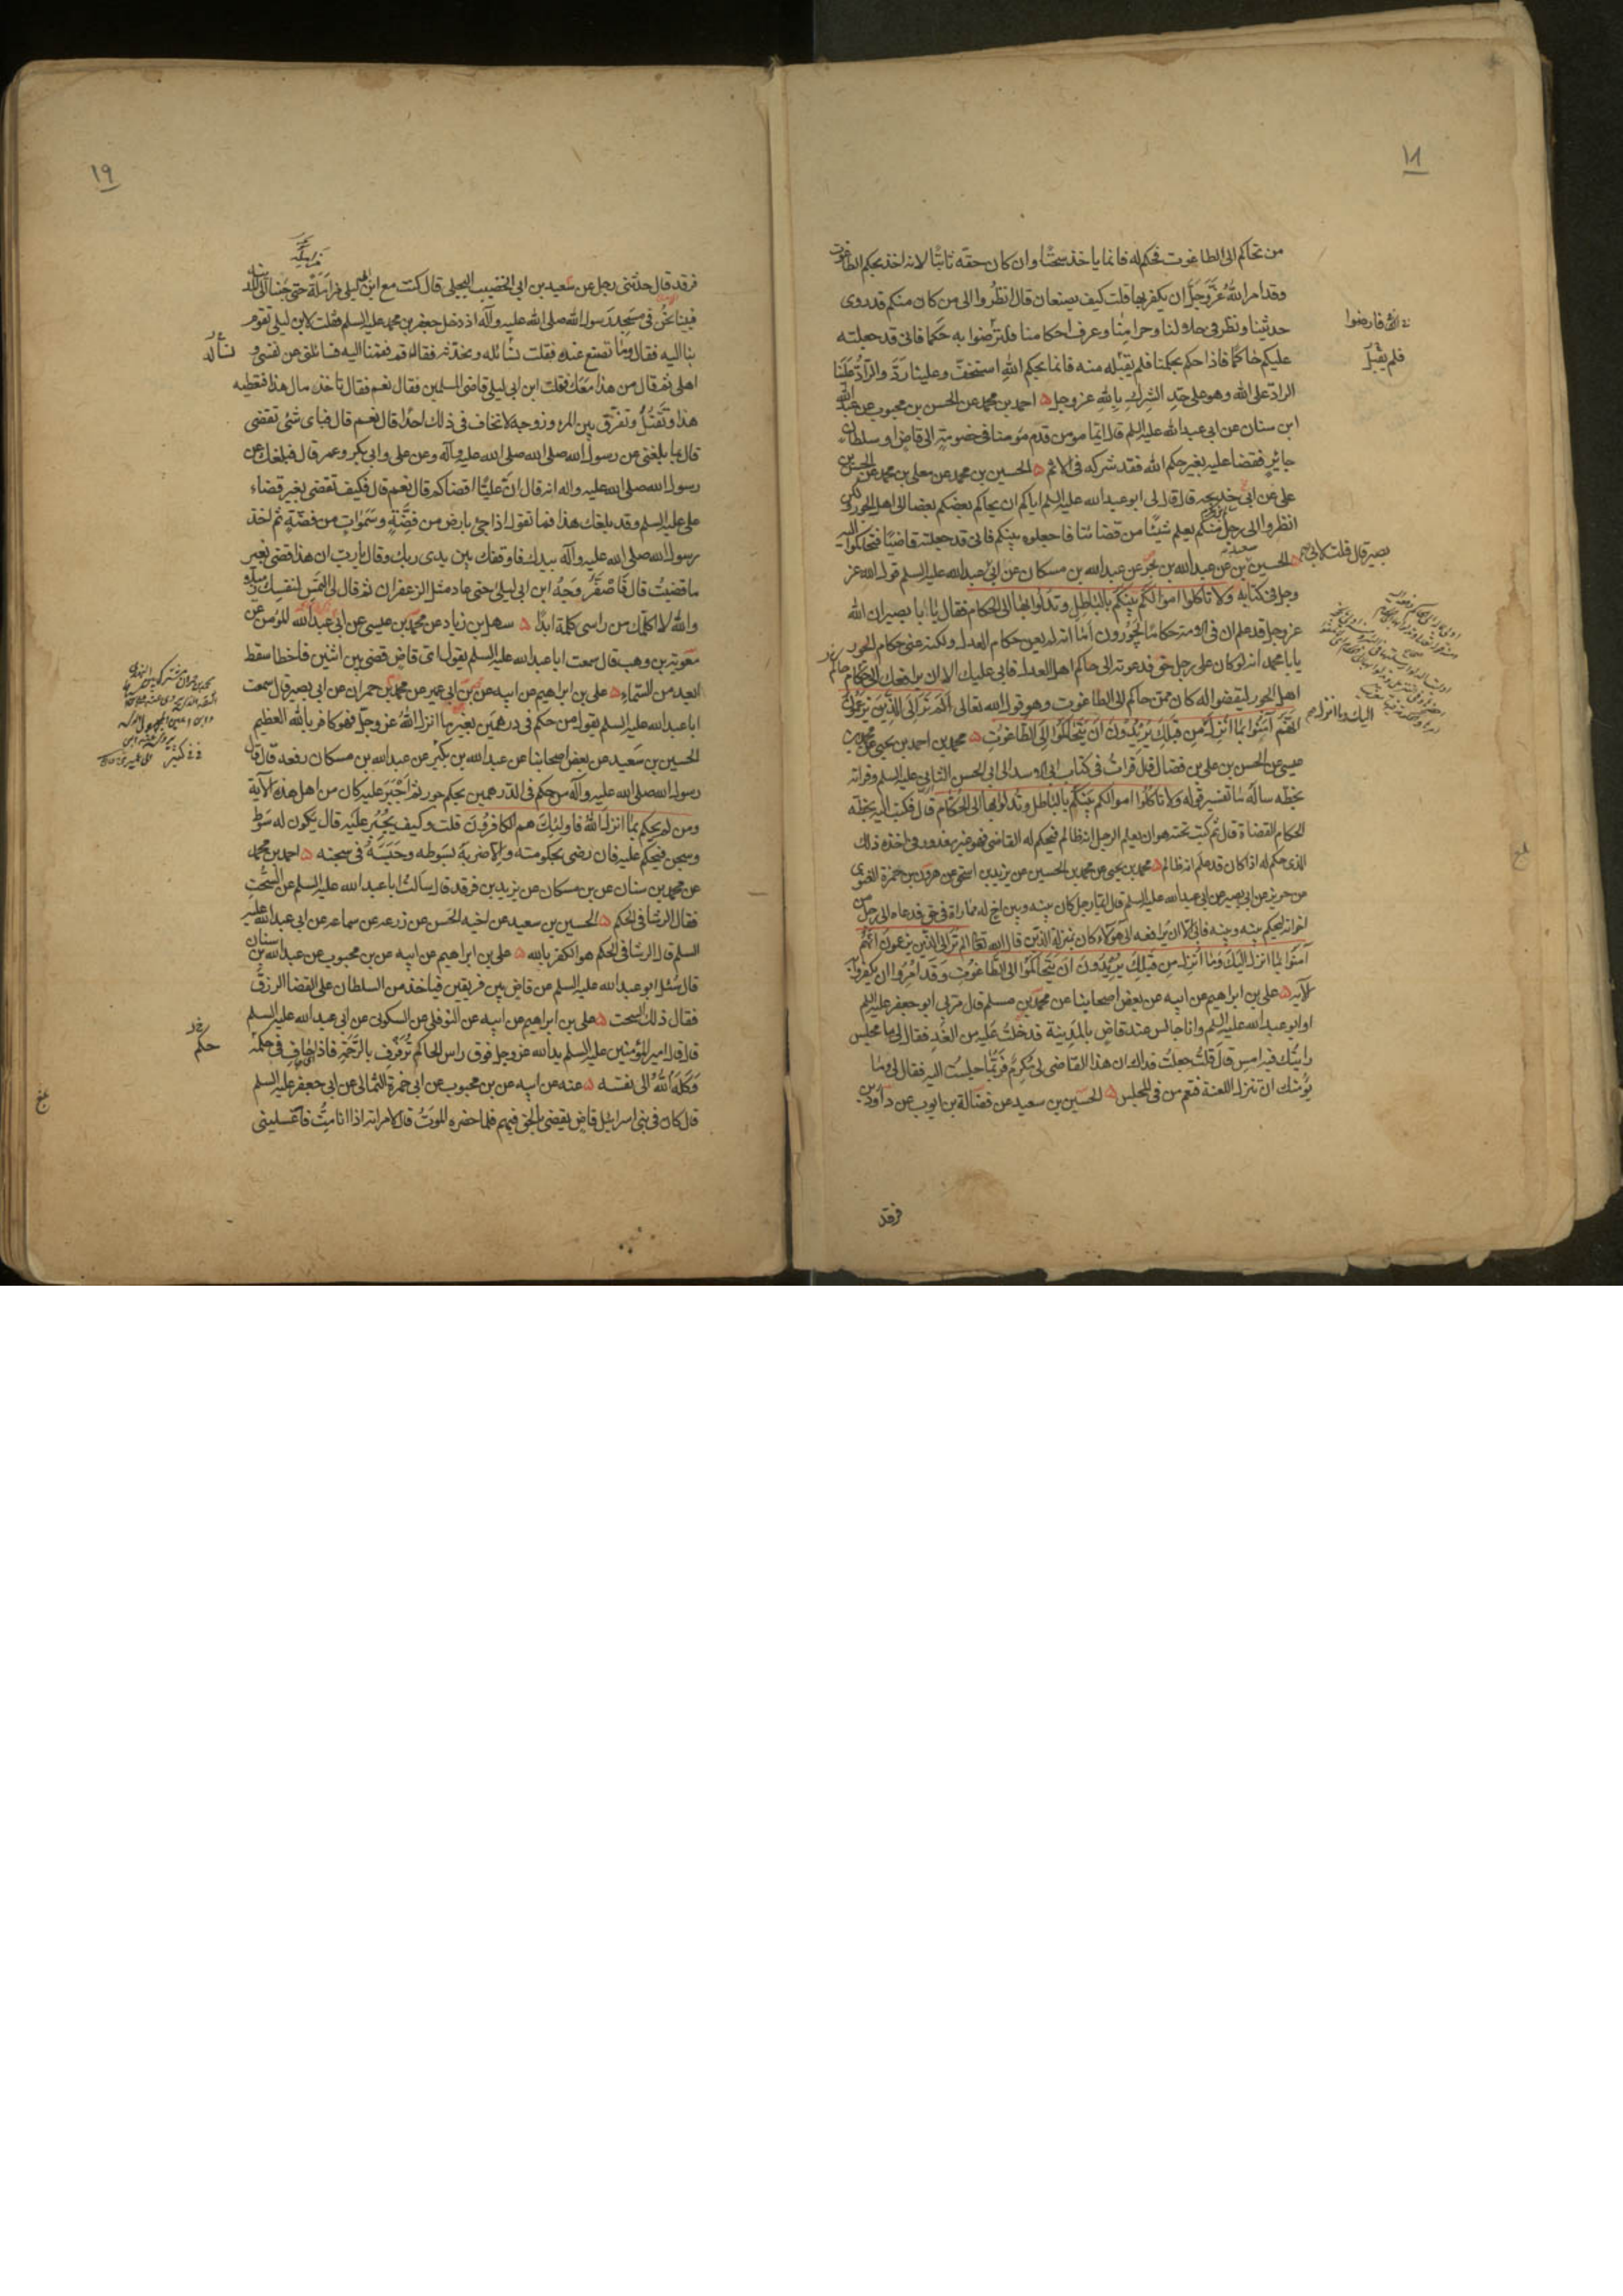 ١٨
من تحاكم الى الطاغوت فحكم له فانما ياخذ سحتًا وان كان حقه ثابتًا لانه اخذ بحكم الطاغوت
وقد امر الله عزّ وجلّ ان يكفر بها قلت كيف يصنعان قال انظروا الى من كان منكم قد روى
حديثنا ونظر فى حلالنا وحرامنا وعرف احكامنا فلترضوا به حكما فانى قد جعلته
عليكم حاكمًا فاذا حكم بحكمنا فلم يقبله منه فانما بحكم الله استخفّ وعلينا ردّ والرادّ علينا
الرادّ على الله وهو على حدّ الشرك بالله عز وجل ه احمد بن محمد عن الحسن بن محبوب عن عبدالله
ابن سنان عن ابى عبد الله عليه السلم قال ايّما مومن قدم مومنا فى خصومة الى قاضٍ او سلطان
جايرٍ فقضا عليه بغير حكم الله فقد شركه فى الاثم ه الحسين بن محمد عن معلى بن محمد عن الحسن بن
على عن ابى خديجه قال قال لى ابو عبد الله عليه السلم اياكم ان يحاكم بعضكم بعضا الى اهل الجور ولكن
انظروا الى رجل منكم يعلم شيئًا من قضائنا فاجعلوه بينكم فانى قد جعلته قاضيًا فتحاكموا اليه
ه الحسين بن سعيد عن عبدالله بن بحر عن عبدالله بن مسكان عن ابى عبدالله عليه السلم قول الله عز
بصير قال قلت لابى
وجل فى كتابه ولا تاكلوا اموالكم بينكم بالباطل وتدلوا بها الى الحكام فقال يا ابا بصير ان الله
عز وجل قد علم ان فى الامة حكامًا يجورون اما انه لم يعن حكام العدل ولكنه عنى حكام الجور
يا با محمد انه لو كان على رجل حق فدعوته الى حاكم اهل العدل فابى عليك الا ان يرافعك الى حكام
اهل الجور ليقضوا له كان ممن حاكم الى الطاغوت وهو قول الله تعالى الم تر الى الذين يزعمون
انهم آمنوا بما انزل من قبلك يريدون ان يتحاكموا الى الطاغوت ه محمد بن احمد بن يحيى عن محمد بن
عيسى عن الحسن بن على بن فضال قال قرات فى كتاب ابى الاسد الى ابى الحسن الثانى عليه السلم وقراته
بخطه ساله ما تفسير قوله ولا تاكلوا اموالكم بينكم بالباطل وتدلوا بها الى الحكام قال فكتب اليه بخطه
الحكام القضاة قال ثم كتب تحته هو ان يعلم الرجل انه ظالم فيحكم له القاضى فهو غير معذور فى اخذه ذلك
الذى حكم له اذا كان قد علم انه ظالم ه محمد بن يحيى عن محمد بن الحسين عن يزيد بن اسحق عن هرون بن حمزة الغنوى
عن حريز عن ابى بصير عن ابى عبد الله عليه السلم قال ايما رجل كان بينه وبين اخ له مماراة فى حق فدعاه الى رجل من
اخوانه ليحكم بينه وبينه فابى الا ان يرافعه الى هؤلاء كان بمنزلة الذين قال الله تعا الم تر الى الذين يزعمون انهم
آمنوا بما انزل اليك وما انزل من قبلك يريدون ان يتحاكموا الى الطاغوت وقد امروا ان يكفروا به
الآيه ه على بن ابراهيم عن ابيه عن بعض اصحابنا عن محمد بن مسلم قال مر بى ابو جعفر عليه السلم
او ابو عبد الله عليه السلم وانا جالس عند قاضٍ بالمدينة فدخلت عليه من الغد فقال لى ما مجلس
رايتك فيه امس قال قلت جعلت فداك ان هذا القاضى لى مكرم فربّما جلست اليه فقال لى وما
يؤمنك ان تنزل اللعنة فتعم من فى المجلس ه الحسين بن سعيد عن فضالة بن ايوب عن داود بن
فرقد
فارضوا
فلم يقبل
١٩
فرقد قال حدثنى رجل عن سعيد بن ابى الخضيب البجلى قال كنت مع ابن ابى ليلى مزاملة حتى جئنا الى المدينة
فبينا نحن فى مسجد رسول الله صلى الله عليه وآله اذ دخل جعفر بن محمد عليه السلم فقلت لابن ليلى تقوم
بنا اليه فقال وما تصنع عنده فقلت نسائله ونحدّثه فقال قم فقمنا اليه فسائلنى عن نفسى و
اهلى ثم قال من هذا معك فقلت ابن ابى ليلى قاضى المسلمين فقال نعم فقال تاخذ مال هذا فتعطيه
هذا وتقتل وتفرّق بين المرء وزوجه لا تخاف فى ذلك احدًا قال نعم قال فباى شئ تقضى
قال بما بلغنى عن رسول الله صلى الله صلى الله عليه وآله وعن على وابى بكر وعمر قال فبلغك عن
رسول الله صلى الله عليه واله انه قال انّ عليًّا اقضاكم قال نعم قال فكيف تقضى بغير قضاء
على عليه السلم وقد بلغك هذا فما تقول اذا جئ بارض من فضّةٍ وسموات من فضّةٍ ثم اخذ
رسول الله صلى الله عليه وآله بيدك فاوقفك بين يدى ربك وقال يا رب ان هذا قضى بغير
ما قضيت قال فاصفرّ وجه ابن ابى ليلى حتى عاد مثل الزعفران ثم قال لى التمس لنفسك زميلا
والله لا اكلمك من راسى كلمة ابدًا ه سهل بن زياد عن محمد بن عيسى عن ابى عبدالله المؤمن عن
معوية بن وهب قال سمعت ابا عبدالله عليه السلم يقول اىّ قاضٍ قضى بين اثنين فاخطا سقط
ابعد من السماء ه على بن ابراهيم عن ابيه عن بن ابى عمير عن محمد بن حمران عن ابى بصير قال سمعت
ابا عبد الله عليه السلم يقول من حكم فى درهمين بغير ما انزل الله عز وجل فهو كافر بالله العظيم
الحسين بن سعيد عن بعض اصحابنا عن عبدالله بن بكير عن عبدالله بن مسكان رفعه قال قال
رسول الله صلى الله عليه وآله من حكم فى الدرهمين بحكم جور ثم اجبر عليه كان من اهل هذه الآية
ومن لم يحكم بما انزل الله فاولئك هم الكافرون قلت وكيف يجبر عليه قال يكون له سوط
وسجن فيحكم عليه فان رضى بحكومته والا ضربه بسوطه وحبسه فى سجنه ه احمد بن محمد
عن محمد بن سنان عن بن مسكان عن يزيد بن فرقد قال سالت ابا عبد الله عليه السلم عن السحت
فقال الرشا فى الحكم ه الحسين بن سعيد عن اخيه الحسن عن زرعه عن سماعه عن ابى عبدالله عليه
السلم قال الرشا فى الحكم هو الكفر بالله ه على بن ابراهيم عن ابيه عن بن محبوب عن عبدالله بن سنان
قال سئل ابو عبد الله عليه السلم عن قاض بين فريقين فياخذ من السلطان على القضا الرزق
فقال ذلك السحت ه على بن ابراهيم عن ابيه عن النوفلى عن السكونى عن ابى عبد الله عليه السلم
قال قال امير المؤمنين عليه السلم يد الله عز وجل فوق راس الحاكم ترفرف بالرحمة فاذا حاف فى حكمه
وكله الله الى نفسه ه عنه عن ابيه عن بن محبوب عن ابى حمزة الثمالى عن ابى جعفر عليه السلم
قال كان فى بنى اسرائيل قاضٍ يقضى بالحق فيهم فلما حضره الموت قال لامراته اذا انا مت فاغسلينى
حكم